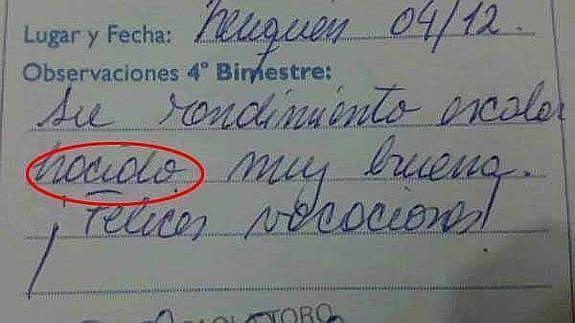 Lugar y Fecha: Neuquen 04/12.
Observaciones 4° Bimestre:
Su rendimiento escolar
hacido muy buena.
¡Felices vacaciones!